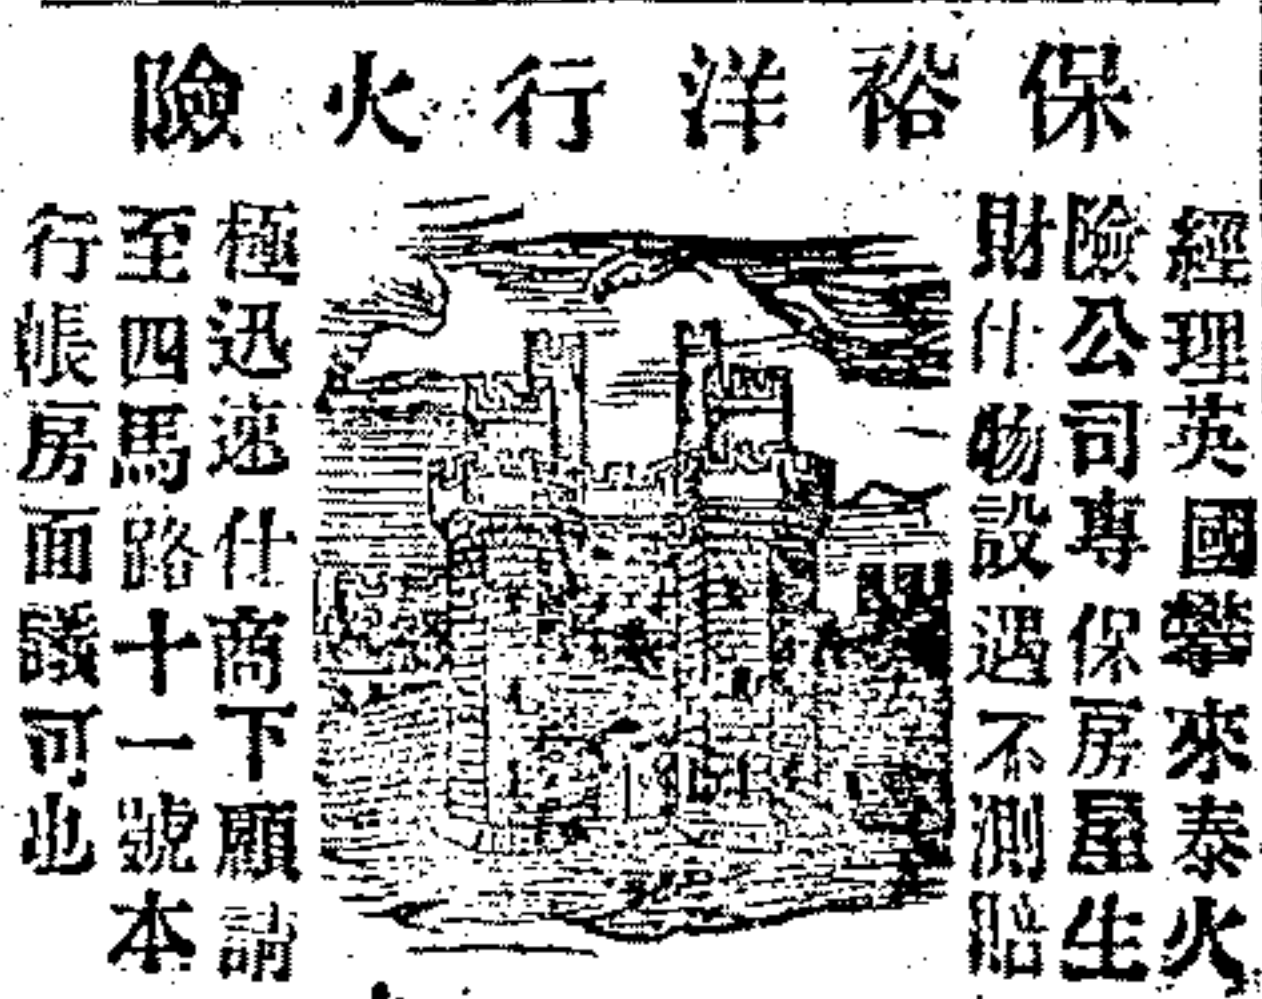 保裕洋行火險
經理英國攀來泰火
險公司專保房屋生
財什物設遇不測賠
極迅速仕商下顧請
至四馬路十一號本
行帳房面議可也